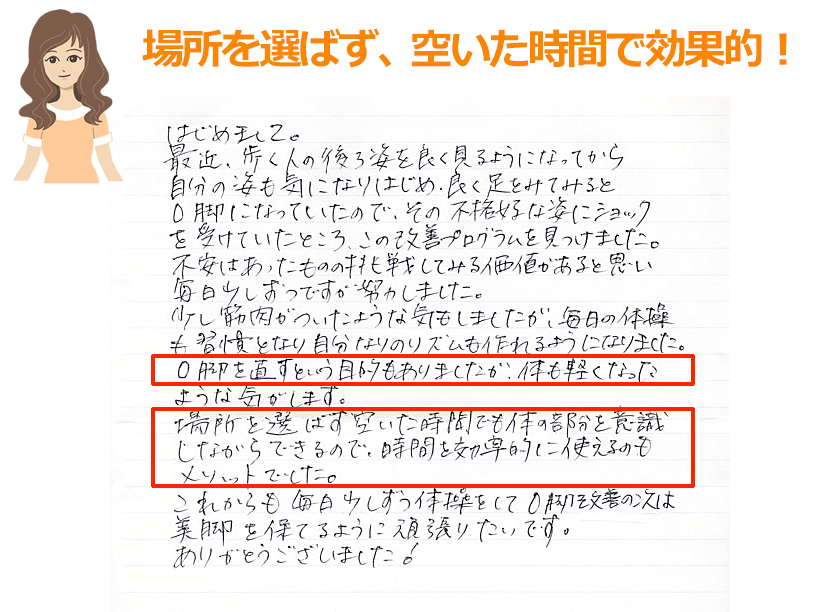 場所を選ばず、空いた時間で効果的！
はじめまして。
最近、歩く人の後ろ姿を良く見るようになってから
自分の姿も気になりはじめ、良く足をみてみると
O脚になっていたので、その不格好な姿にショック
を受けていたところ、この改善プログラムを見つけました。
不安はあったものの挑戦してみる価値があると思い
毎日少しずつですが努力しました。
少し筋肉がついたような気もしましたが、毎日の体操
も習慣となり自分なりのリズムも作れるようになりました。
O脚を直すという目的もありましたが、体も軽くなった
ような気がします。
場所を選ばず空いた時間でも体の部分を意識
しながらできるので、時間を効率的に使えるのも
メリットでした。
これからも毎日少しずつ体操をしてO脚改善の次は
美脚を保てるように頑張りたいです。
ありがとうございました！